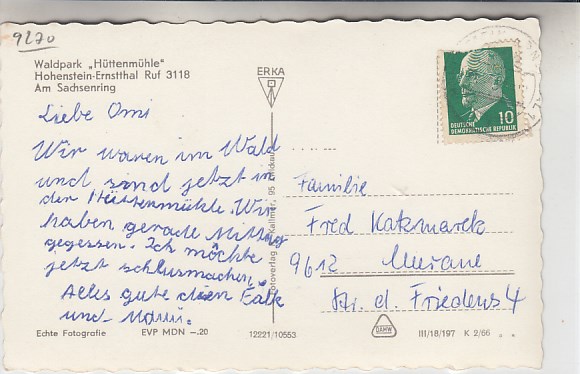 9270
Waldpark „Hüttenmühle"
Hohenstein-Ernstthal Ruf 3118
Am Sachsenring
ERKA
10
DEUTSCHE
DEMOKRATISCHE REPUBLIK
Liebe Omi
Wir waren im Wald
und sind jetzt in
der Hüttenmühle. Wir
haben gerade Mittag
gegessen. Ich möchte
jetzt schlusmachen,
Alles gute dein Falk
und Mami.
Fotoverlag Kallmer, 95 Zwickau
Familie
Fred Katzmarek
9612 Meerane
Str. d. Friedens 4
Echte Fotografie EVP MDN -.20 12221/10553
DAMW
III/18/197 K 2/66